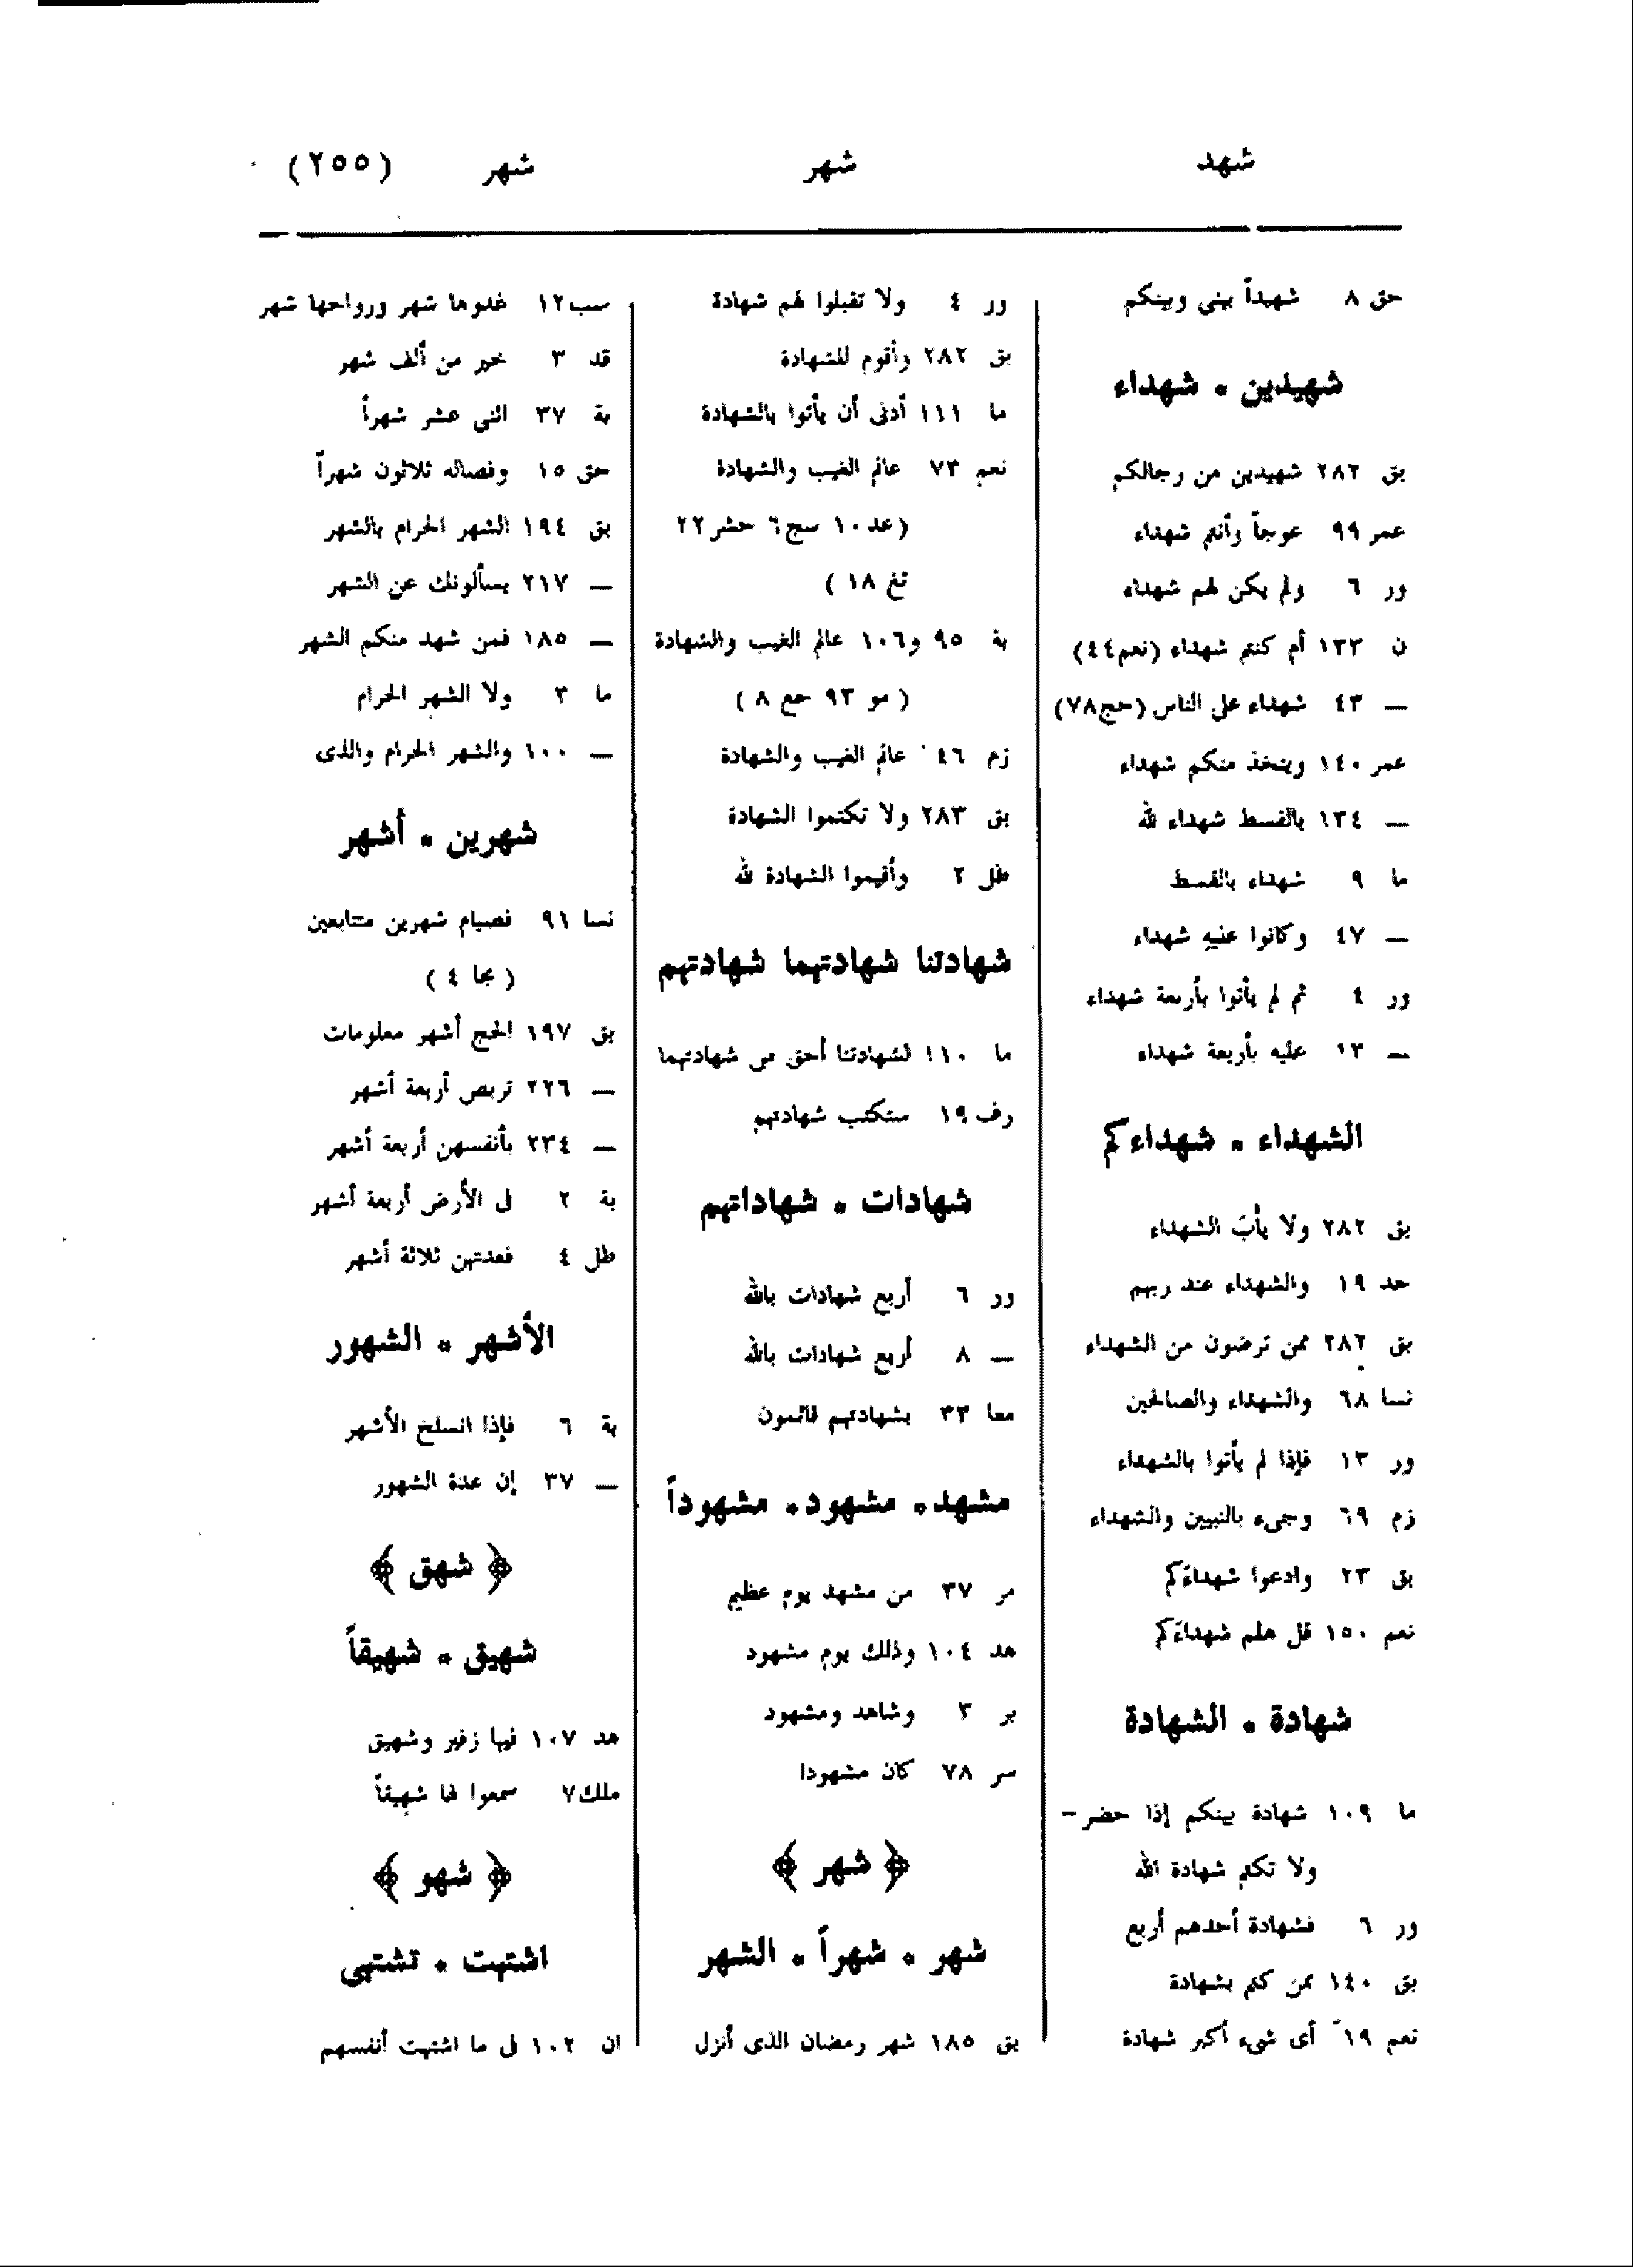 شهد شهر شهر (٢٥٥)
حق ٨ شهيداً بينى وبينكم
شهيدين . شهداء
بق ٢٨٢ شهيدين من رجالكم
عمر ٩٩ عوجاً وأنتم شهداء
ور ٦ ولم يكن لهم شهداء
ن ١٣٣ أم كنتم شهداء (نعم٤٤)
— ٤٣ شهداء على الناس (حج٧٨)
عمر ١٤٠ ويتخذ منكم شهداء
— ١٣٤ بالقسط شهداء لله
ما ٩ شهداء بالقسط
— ٤٧ وكانوا عليه شهداء
ور ٤ ثم لم يأتوا بأربعة شهداء
— ١٣ عليه بأربعة شهداء
الشهداء . شهداءكم
بق ٢٨٢ ولا يأبَ الشهداء
حد ١٩ والشهداء عند ربهم
بق ٢٨٢ ممن ترضون من الشهداء
نسا ٦٨ والشهداء والصالحين
ور ١٣ فإذا لم يأتوا بالشهداء
زم ٦٩ وجىء بالنبيين والشهداء
بق ٢٣ وادعوا شهداءَكم
نعم ١٥٠ قل هلم شهداءَكم
شهادة . الشهادة
ما ١٠٩ شهادة بينكم إذا حضر –
ولا نكتم شهادة الله
ور ٦ فشهادة أحدهم أربع
بق ١٤٠ ممن كتم بشهادة
نعم ١٩ أى شىء أكبر شهادة
ور ٤ ولا تقبلوا لهم شهادة
بق ٢٨٢ وأقوم للشهادة
ما ١١١ أدنى أن يأتوا بالشهادة
نعم ٧٣ عالم الغيب والشهادة
(عد١٠ سج٦ حشر٢٢
تغ ١٨ )
بة ٩٥ و١٠٦ عالم الغيب والشهادة
( مو ٩٣ جمع ٨ )
زم ٤٦ عالم الغيب والشهادة
بق ٢٨٣ ولا تكتموا الشهادة
طل ٢ وأقيموا الشهادة لله
شهادتنا شهادتهما شهادتهم
ما ١١٠ لشهادتنا أحق من شهادتهما
رف ١٩ ستكتب شهادتهم
شهادات . شهاداتهم
ور ٦ أربع شهادات بالله
— ٨ أربع شهادات بالله
معا ٣٣ بشهادتهم قائمون
مشهد. مشهود. مشهوداً
مر ٣٧ من مشهد يوم عظيم
هد ١٠٤ وذلك يوم مشهود
بر ٣ وشاهد ومشهود
سر ٧٨ كان مشهودا
﴿ شهر ﴾
شهر . شهراً . الشهر
بق ١٨٥ شهر رمضان الذى أنزل
سب١٢ غدوها شهر ورواحها شهر
قد ٣ خير من ألف شهر
بة ٣٧ اثنى عشر شهراً
حق ١٥ وفصاله ثلاثون شهراً
بق ١٩٤ الشهر الحرام بالشهر
— ٢١٧ يسألونك عن الشهر
— ١٨٥ فمن شهد منكم الشهر
ما ٣ ولا الشهر الحرام
— ١٠٠ والشهر الحرام والذى
شهرين . أشهر
نسا ٩١ فصيام شهرين متتابعين
( مجا ٤ )
بق ١٩٧ الحج أشهر معلومات
— ٢٢٦ تربص أربعة أشهر
— ٢٣٤ بأنفسهن أربعة أشهر
بة ٢ فى الأرض أربعة أشهر
طل ٤ فعدتهن ثلاثة أشهر
الأشهر . الشهور
بة ٦ فإذا انسلخ الأشهر
— ٣٧ إن عدة الشهور
﴿ شهق ﴾
شهيق . شهيقاً
هد ١٠٧ فيها زفير وشهيق
ملك٧ سمعوا لها شهيقاً
﴿ شهو ﴾
اشتهت . تشتهى
ان ١٠٢ فى ما اشتهت أنفسهم